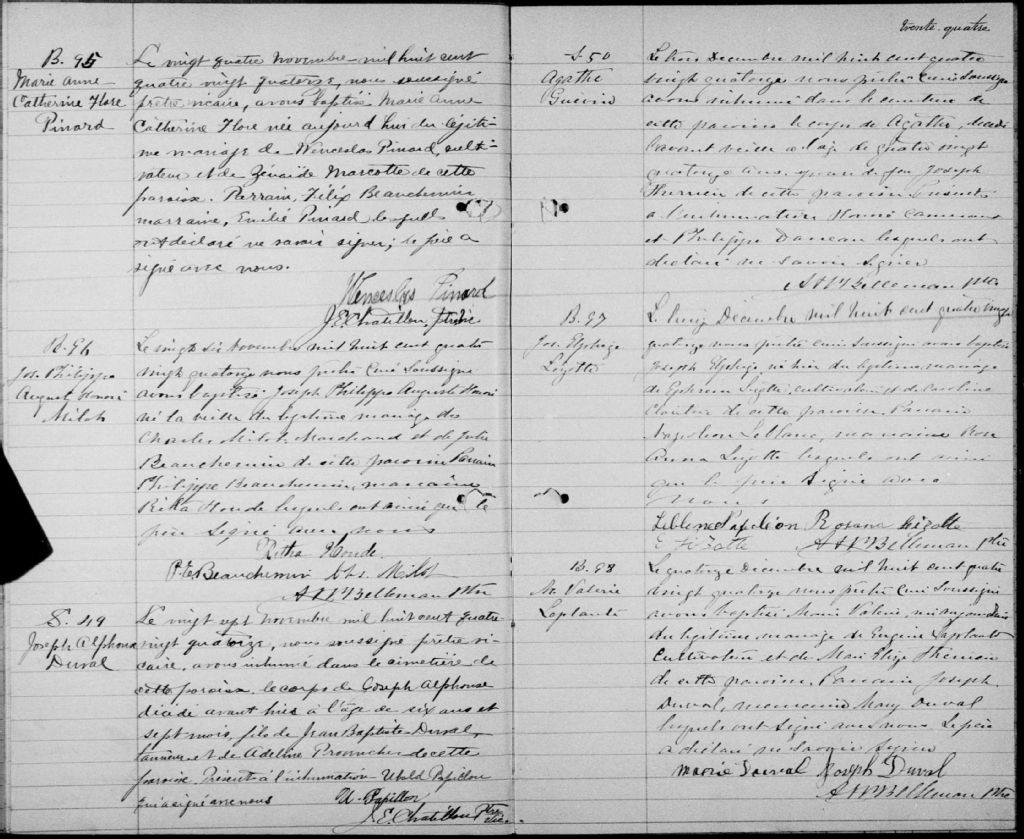 B. 95
Marie Anne
Catherine Flore
Pinard
Le vingt quatre novembre mil huit cent
quatre vingt quatorze, nous soussigné
prêtre vicaire, avons baptisé Marie Anne
Catherine Flore née aujourd'hui du légiti-
me mariage de Wenceslas Pinard, culti-
vateur et de Zénaïde Marcotte de cette
paroisse. Parrain, Félix Beauchemin
marraine, Emilie Pinard lesquels
ont déclaré ne savoir signer; le père a
signé avec nous.
Wenceslas Pinard
J. E. Chatillon, Ptre vic.
B. 96
Jos. Philippe
August Honoré
Milot
Le vingt six novembre mil huit cent quatre
vingt quatorze nous prêtre Curé Soussigné
avons baptisé Joseph Philippe Auguste Honoré
né la veille du légitime mariage de
Charles Milot Marchand et de Julie
Beauchemin de cette paroisse Parrain
Philippe Beauchemin, marraine
Ritha Houde lesquels ont ainsi que le
père Signé avec nous
Ritha Houde.
P. E. Beauchemin Chs. Milot
A H Belleman Ptre
S. 49
Joseph Alphonse
Duval
Le vingt sept novembre mil huit cent quatre
vingt quatorze, nous soussigné prêtre vi-
caire, avons inhumé dans le cimetière de
cette paroisse, le corps de Joseph Alphonse
décédé avant hier à l'âge de six ans et
sept mois, fils de Jean Baptiste Duval,
tanneur et de Adeline Provencher de cette
paroisse. Présent à l'inhumation Ubald Papillon
qui a signé avec nous
U. Papillon
J. E. Chatillon Ptre Vic.
trente-quatre
S. 50
Agathe
Guérin
Le trois Décembre mil huit cent quatre
vingt quatorze nous prêtre Curé Soussigné
avons inhumé dans le cimetière de
cette paroisse le corps de Agathe, décédée
l'avant veille à l'âge de quatre vingt
quatorze ans, épouse de feu Joseph
Therrien de cette paroisse Présents
à l'inhumation
et Philippe lesquels ont
déclaré ne savoir signer
A H Belleman Ptre
B. 97
Jos. Elphège
Lizotte
Le Décembre mil huit cent quatre vingt
quatorze nous prêtre Curé Soussigné avons baptisé
Joseph Elphège, né hier du légitime mariage
de Ephrem Lizotte, cultivateur et de Caroline
Cloutier de cette paroisse, Parrain
Napoléon Leblanc, marraine Rose
Anna Lizotte lesquels ont ainsi
que le père Signé avec
nous
Leblanc Napoléon Rosana Lizotte
E Lizotte A H Belleman Ptre
B. 98
M. Valérie
Laplante
Le quatorze Décembre mil huit cent quatre
vingt quatorze nous prêtre Curé Soussigné
avons baptisé Marie Valérie née aujourd'hui
du légitime mariage de Eugène Laplante
Cultivateur et de Marie Eliza Therrien
de cette paroisse, Parrain Joseph
Duval, marraine Mary Duval
lesquels ont signé avec nous. Le père
a déclaré ne savoir signer
Marie Duval Joseph Duval
A H Belleman Ptre